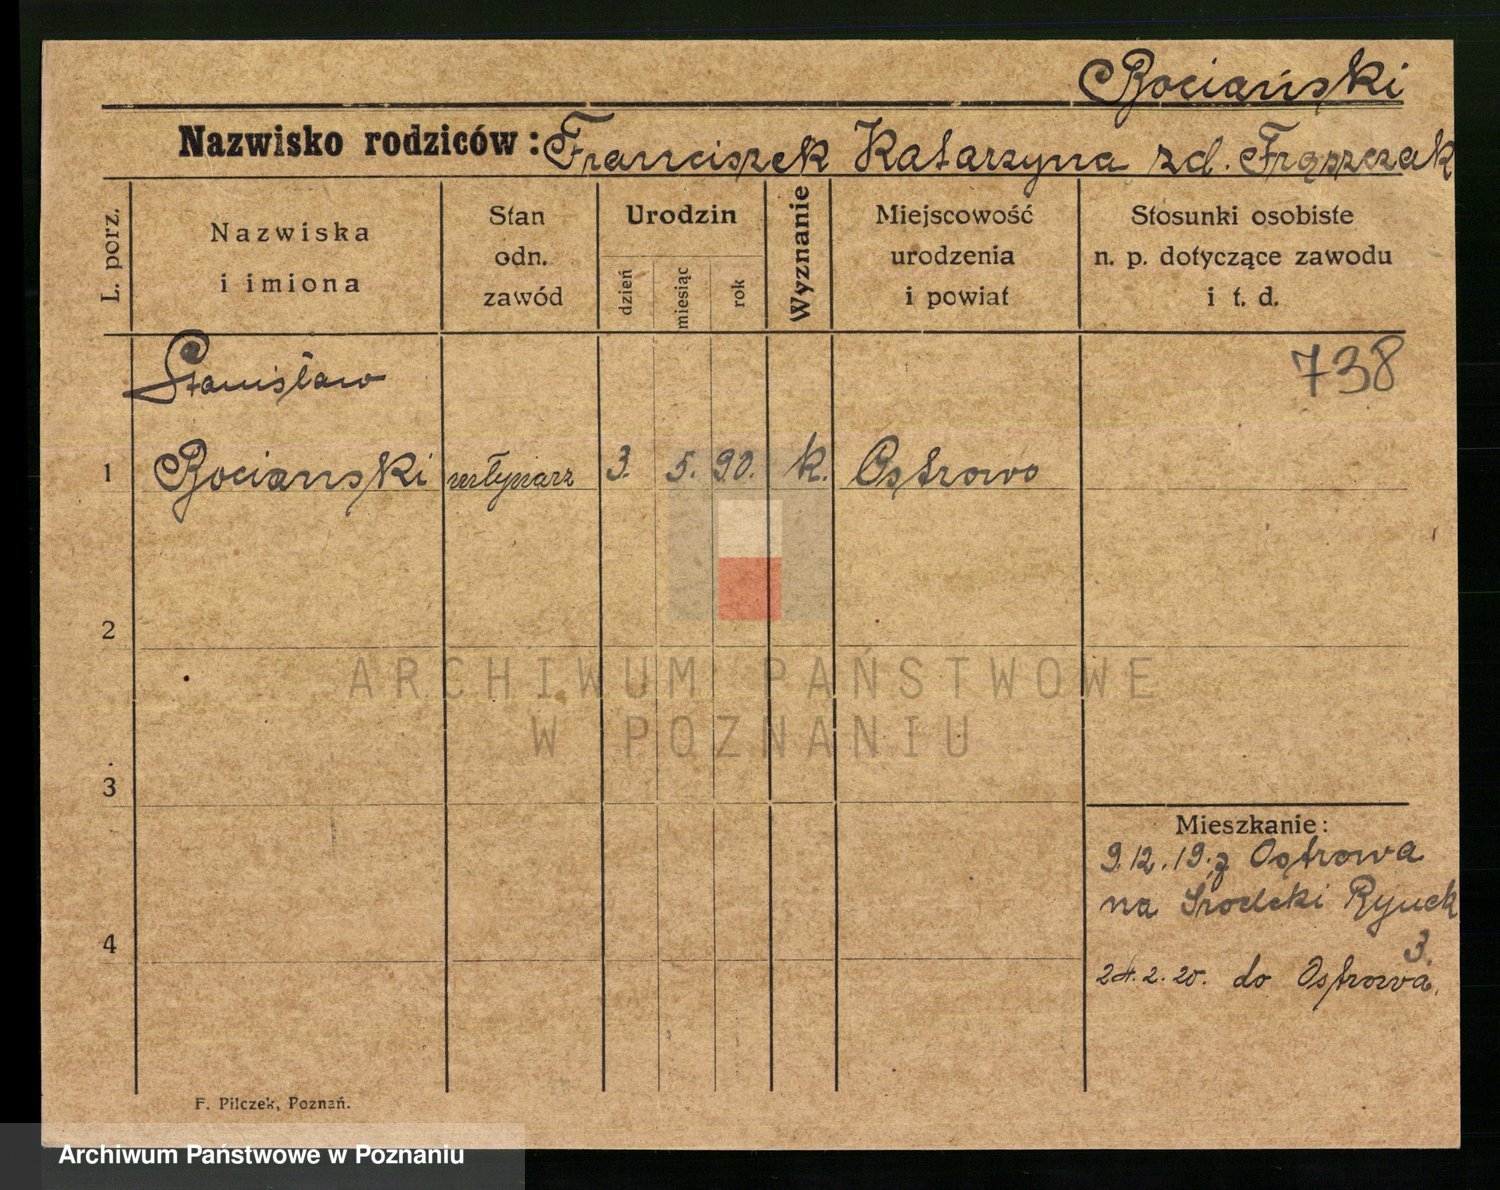 Bociański
Nazwisko rodziców: Franciszek Katarzyna zd. Frąszczak
L. porz.
Nazwiska
i imiona
Stan
odn.
zawód
Urodzin
dzień
miesiąc
rok
Wyznanie
Miejscowość
urodzenia
i powiat
Stosunki osobiste
n. p. dotyczące zawodu
i t. d.
738
Stanisław
1 Bocianski młynarz 3. 5. 90. k. Ostrowo
2
ARCHIWUM PAŃSTWOWE
W POZNANIU
3
Mieszkanie:
9.12.19. z Ostrowa
na Środcki Rynek
3.
4
24.2.20. do Ostrowa.
F. Pilczek, Poznań.
Archiwum Państwowe w Poznaniu